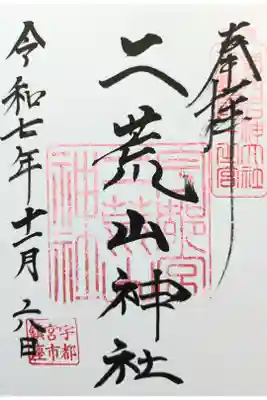 奉拝
二荒山神社
令和七年十一月六日
宇都
宮市
鎮座